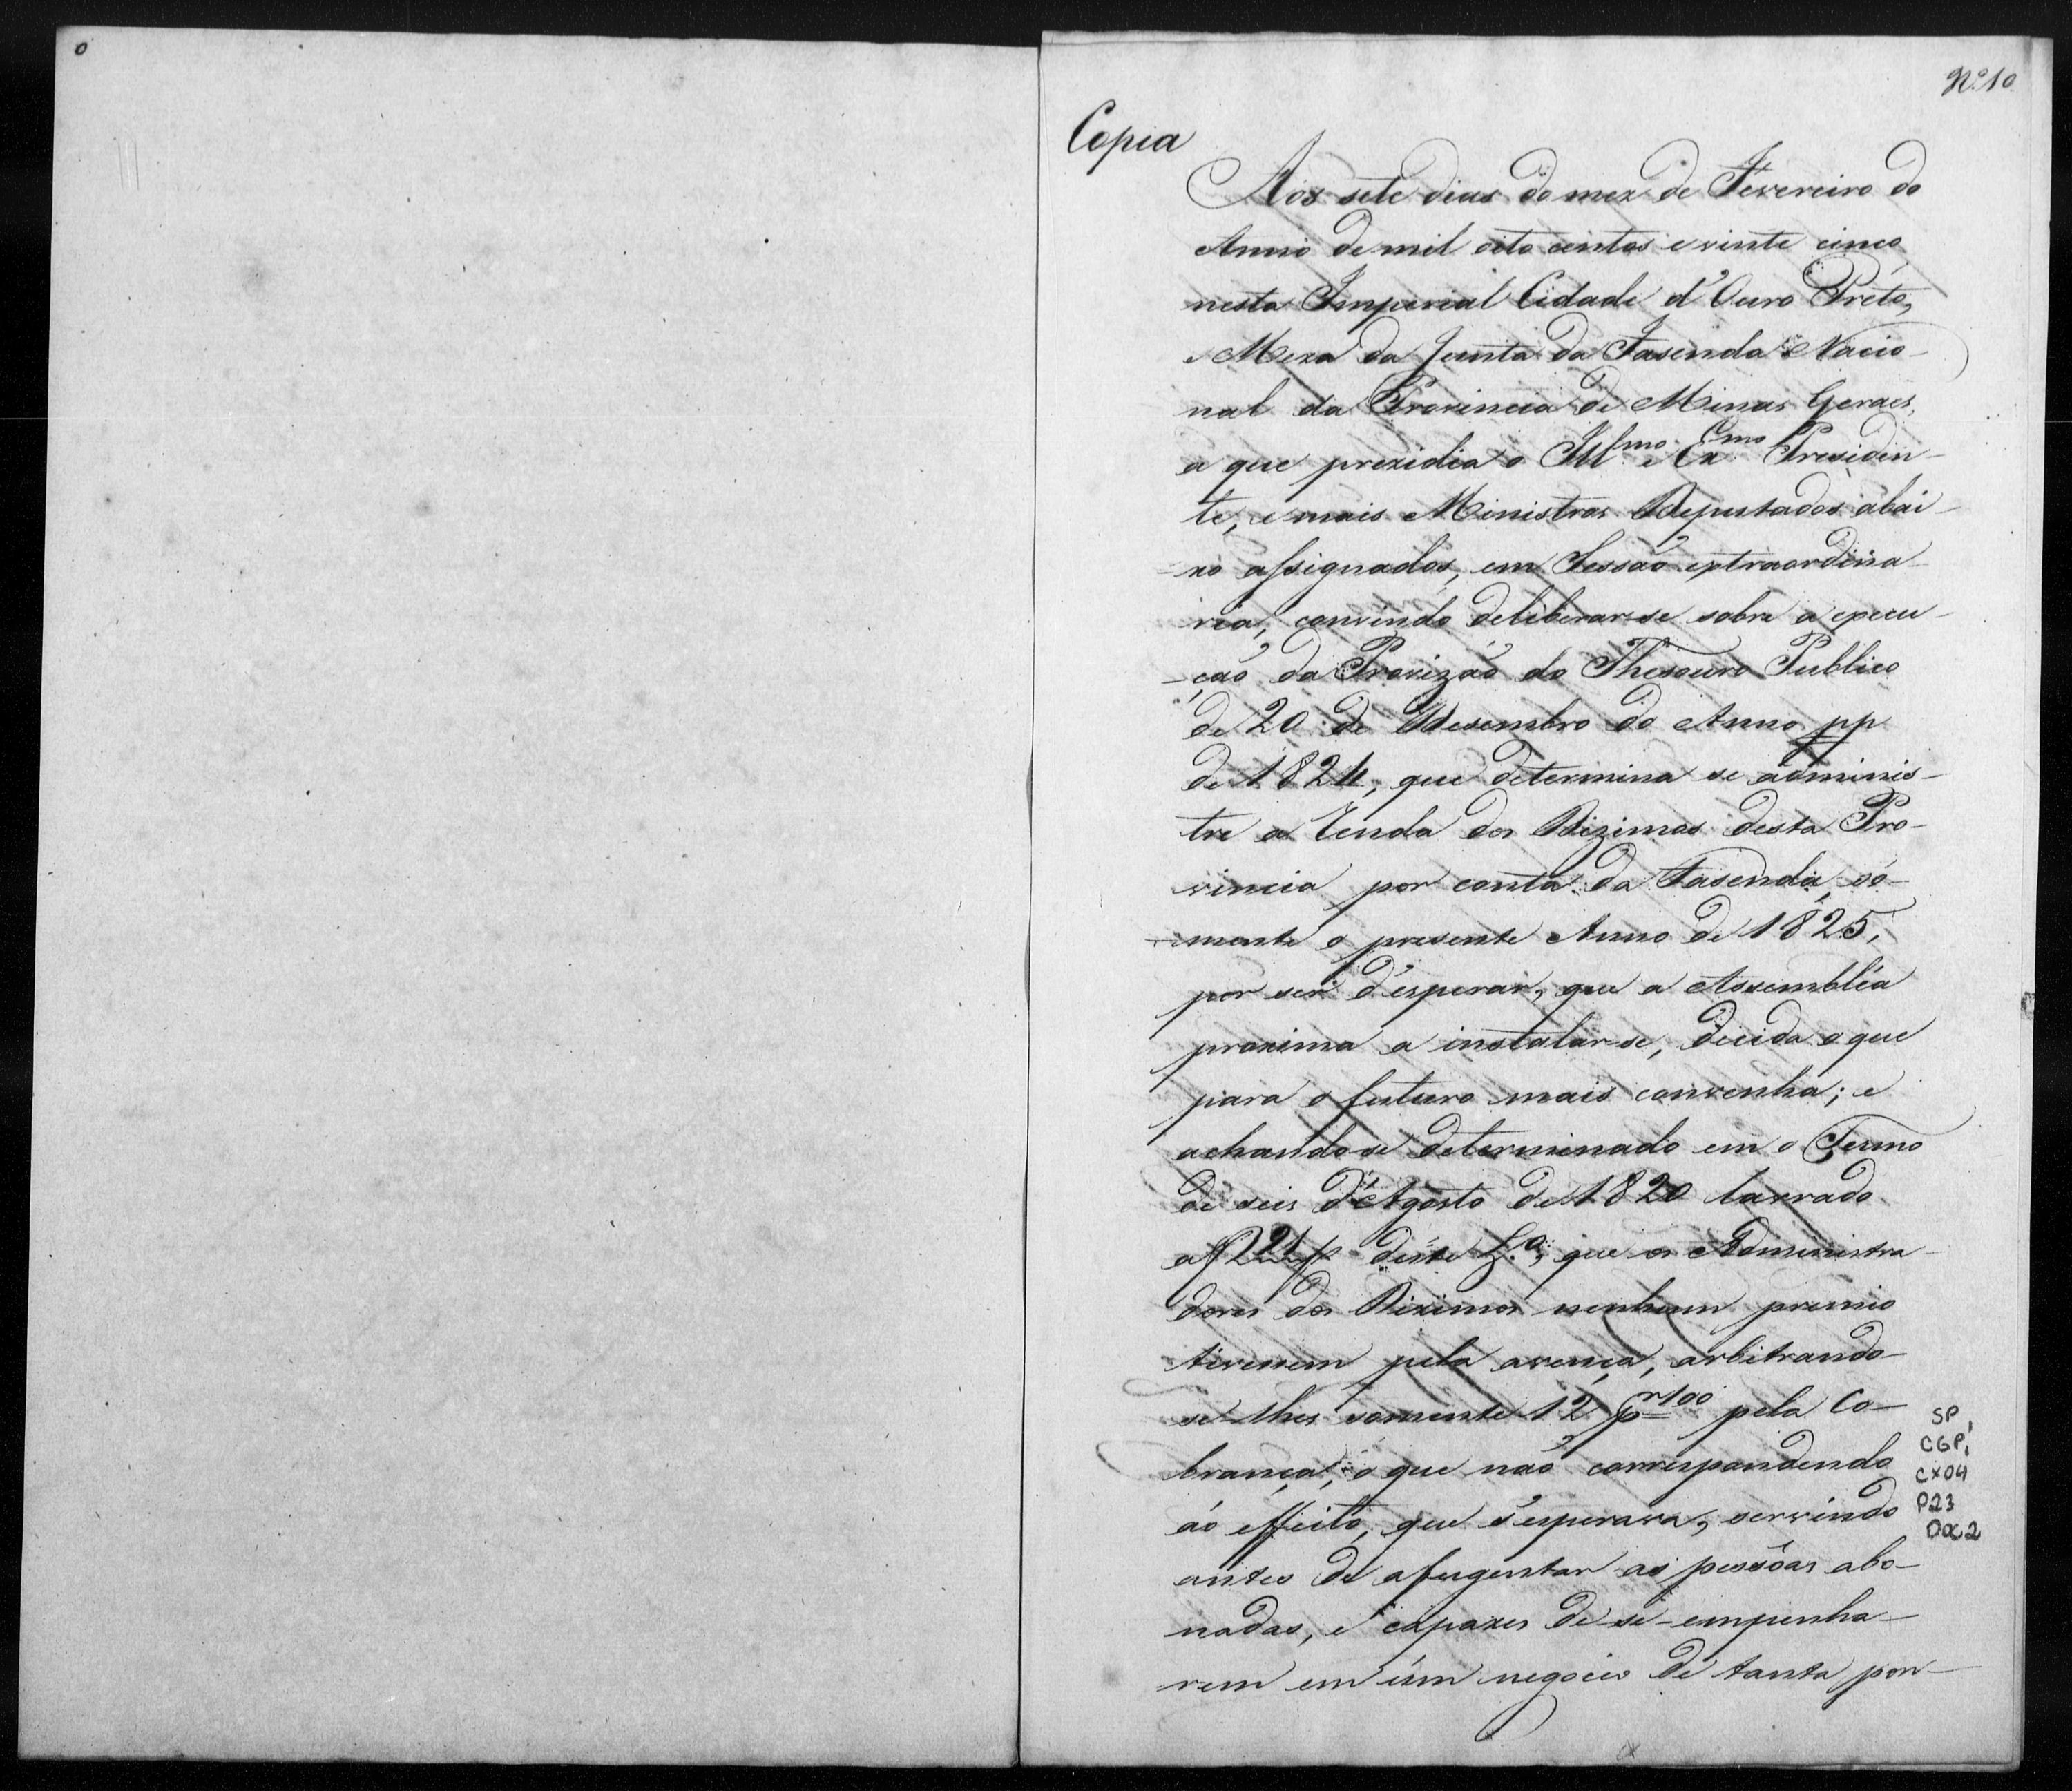 Nº 10
Copia
Aos sete dias do mez de Fevereiro do
Anno de mil oito centos e vinte cinco
nesta Imperial Cidade d'Ouro Prêto,
e Meza da Junta da Fasenda Nacio-
nal da Provincia de Minas Geraes,
a que prezidia o Illmo e Exmo Presiden-
te, e mais Ministros Deputados abai-
xo assignados, em Sessão extraordina-
ria, convindo deliberar-se sobre a execu-
ção da Provizão do Thesouro Publico
de 20 de Desembro do Anno pp
de 1824, que determina se adminis-
tre a renda dos Dizimos desta Pro-
vincia por conta da Fasenda, só-
mente o presente Anno de 1825,
por ser d'esperar, que a Assembléa
proxima a instalar-se, decida o que
para o futuro mais convenha; e
achando-se determinado em o Termo
de seis d'Agosto de 1820 lavrado
a f 221 deste L.o, que os Administra-
dores dos Dizimos nenhum premio
tivessem pela avença, arbitrando-
se-lhes somente 12 pr 100 pela Co-
brança, o que não correspondendo
ao effeito, que s'esperava, servindo
antes de afugentar as pessôas abo-
nadas, e capazes de-se-empenha-
rem em úm negocio de tanta pon-
SP,
CGP,
CX04
P23
DOC2